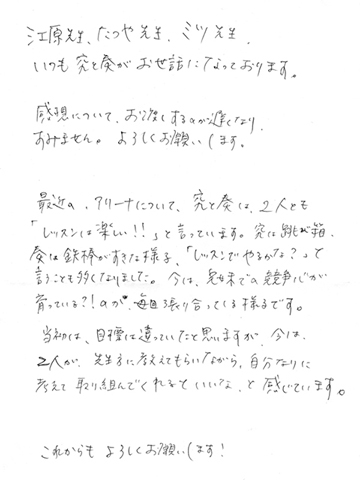 江原先生、たつや先生、ミツ先生
いつも究と奏がお世話になっております。
感想について、お渡しするのが遅くなり、
すみません。よろしくお願いします。
最近の、アリーナについて、究と奏は、2人とも
「レッスンは楽しい!!」と言っています。究は跳び箱、
奏は鉄棒がすきな様子、「レッスンでやるかな?」って
言うことも多くなりました。今は、兄妹での競争心が
育っている?!のか、毎回張り合っている様子です。
当初は、目標は違っていたと思いますが、今は、
2人が、先生方に考えてもらいながら、自分なりに
考えて取り組んでくれるといいな、と感じています。
これからもよろしくお願いします!